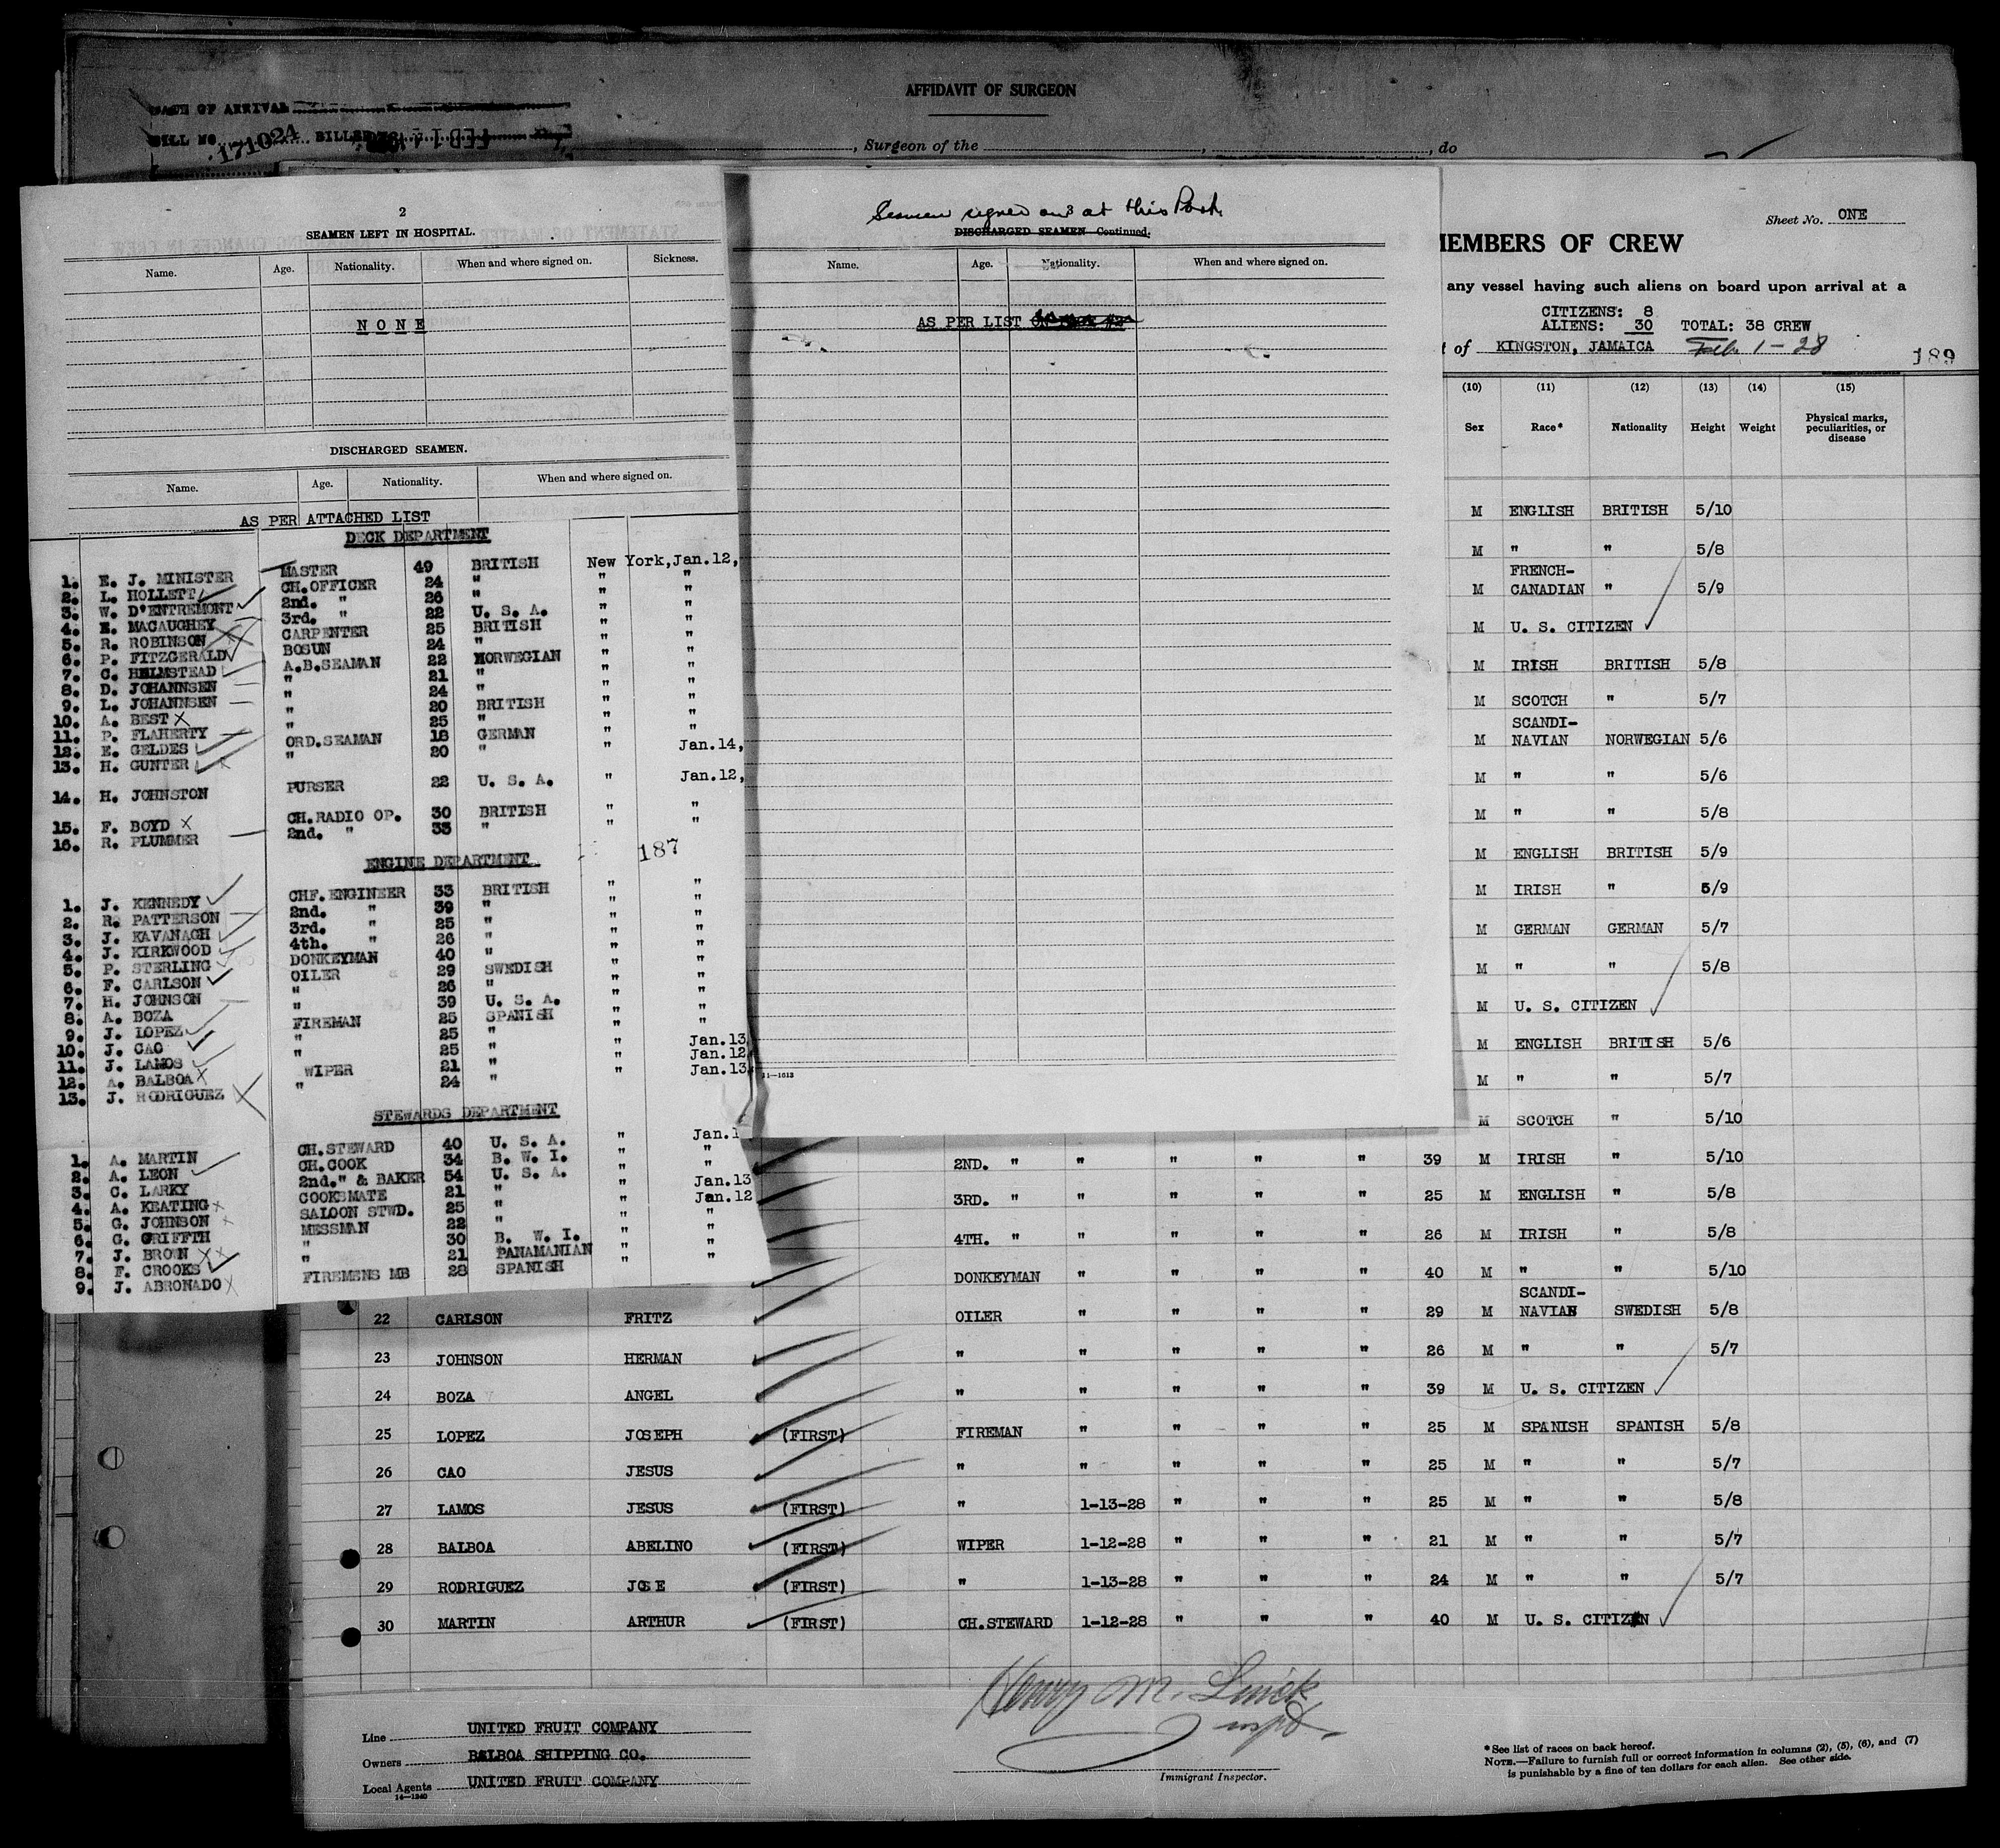 AFFIDAVIT OF SURGEON
DATE OF ARRIVAL
BILL NO. 171024
, Surgeon of the , , do
2
SEAMEN LEFT IN HOSPITAL.
Name. Age. Nationality. When and where signed on. Sickness.
NONE
DISCHARGED SEAMEN.
Name. Age. Nationality. When and where signed on.
AS PER ATTACHED LIST
DECK DEPARTMENT
1. E. J. MINISTER MASTER 49 BRITISH New York, Jan.12,
2. L. HOLLETT CH.OFFICER 24 " " "
3. W. D'ENTREMONT 2nd. " 26 " " "
4. E. MACAUGHEY 3rd. " 22 U. S. A. " "
5. R. ROBINSON CARPENTER 25 BRITISH " "
6. P. FITZGERALD BOSUN 24 " " "
7. C. HELMSTEAD A.B.SEAMAN 22 NORWEGIAN " "
8. D. JOHANNSEN " 21 " " "
9. L. JOHANNSEN " 24 " " "
10. A. BEST " 20 BRITISH " "
11. P. FLAHERTY " 25 " " "
12. E. GELDES ORD.SEAMAN 18 GERMAN " "
13. H. GUNTER " 20 " " Jan.14,
14. H. JOHNSTON PURSER 22 U. S. A. " Jan.12,
15. F. BOYD CH.RADIO OP. 30 BRITISH " "
16. R. PLUMMER 2nd. " 33 " " "
187
ENGINE DEPARTMENT
1. J. KENNEDY CHF.ENGINEER 33 BRITISH " "
2. R. PATTERSON 2nd. " 39 " " "
3. J. KAVANAGH 3rd. " 25 " " "
4. J. KIRKWOOD 4th. " 26 " " "
5. P. STERLING DONKEYMAN 40 " " "
6. F. CARLSON OILER 29 SWEDISH " "
7. H. JOHNSON " 26 " " "
8. A. BOZA " 39 U. S. A. " "
9. J. LOPEZ FIREMAN 25 SPANISH " "
10. J. CAO " 25 " " "
11. J. LAMOS " 25 " " Jan.13
12. A. BALBOA WIPER 21 " " Jan.12
13. J. RODRIGUEZ " 24 " " Jan.13
STEWARDS DEPARTMENT
1. A. MARTIN CH.STEWARD 40 U. S. A. " Jan.1
2. A. LEON CH.COOK 34 B. W. I. " "
3. C. LARKY 2nd." & BAKER 54 U. S. A. " "
4. A. KEATING COOKSMATE 21 " " Jan.13
5. G. JOHNSON SALOON STWD. 25 " " Jan.12
6. G. GRIFFTH MESSMAN 22 " " "
7. J. BROWN " 30 B. W. I. " "
8. F. CROOKS " 21 PANAMANIAN " "
9. J. ABRONADO FIREMENS MB 28 SPANISH " "
Seamen signed on at this Port.
DISCHARGED SEAMEN—Continued.
Name. Age. Nationality. When and where signed on.
AS PER LIST
11—1613
Sheet No. ONE
MEMBERS OF CREW
any vessel having such aliens on board upon arrival at a
CITIZENS: 8
ALIENS: 30 TOTAL: 38 CREW
of KINGSTON, JAMAICA Feb. 1-28
189
(10) (11) (12) (13) (14) (15)
Sex Race* Nationality Height Weight Physical marks, peculiarities, or disease
M ENGLISH BRITISH 5/10
M " " 5/8
FRENCH-
M CANADIAN " 5/9
M U. S. CITIZEN
M IRISH BRITISH 5/8
M SCOTCH " 5/7
SCANDI-
M NAVIAN NORWEGIAN 5/6
M " " 5/6
M " " 5/8
M ENGLISH BRITISH 5/9
M IRISH " 5/9
M GERMAN GERMAN 5/7
M " " 5/8
M U. S. CITIZEN
M ENGLISH BRITISH 5/6
M " " 5/7
M SCOTCH " 5/10
2ND. " " " " " 39 M IRISH " 5/10
3RD. " " " " " 25 M ENGLISH " 5/8
4TH. " " " " " 26 M IRISH " 5/8
DONKEYMAN " " " " 40 M " " 5/10
SCANDI-
22 CARLSON FRITZ OILER " " " " 29 M NAVIAN SWEDISH 5/8
23 JOHNSON HERMAN " " " " " 26 M " " 5/7
24 BOZA ANGEL " " " " " 39 M U. S. CITIZEN
25 LOPEZ JOSEPH (FIRST) FIREMAN " " " " 25 M SPANISH SPANISH 5/8
26 CAO JESUS " " " " " 25 M " " 5/7
27 LAMOS JESUS (FIRST) " 1-13-28 " " " 25 M " " 5/8
28 BALBOA ABELINO (FIRST) WIPER 1-12-28 " " " 21 M " " 5/7
29 RODRIGUEZ JOSE (FIRST) " 1-13-28 " " " 24 M " " 5/7
30 MARTIN ARTHUR (FIRST) CH.STEWARD 1-12-28 " " " 40 M U. S. CITIZEN
Line UNITED FRUIT COMPANY
Owners BALBOA SHIPPING CO.
Local Agents UNITED FRUIT COMPANY
14—1240
Henry M.
Immigrant Inspector.
*See list of races on back hereof.
NOTE.—Failure to furnish full or correct information in columns (2), (5), (6), and (7)
is punishable by a fine of ten dollars for each alien. See other side.